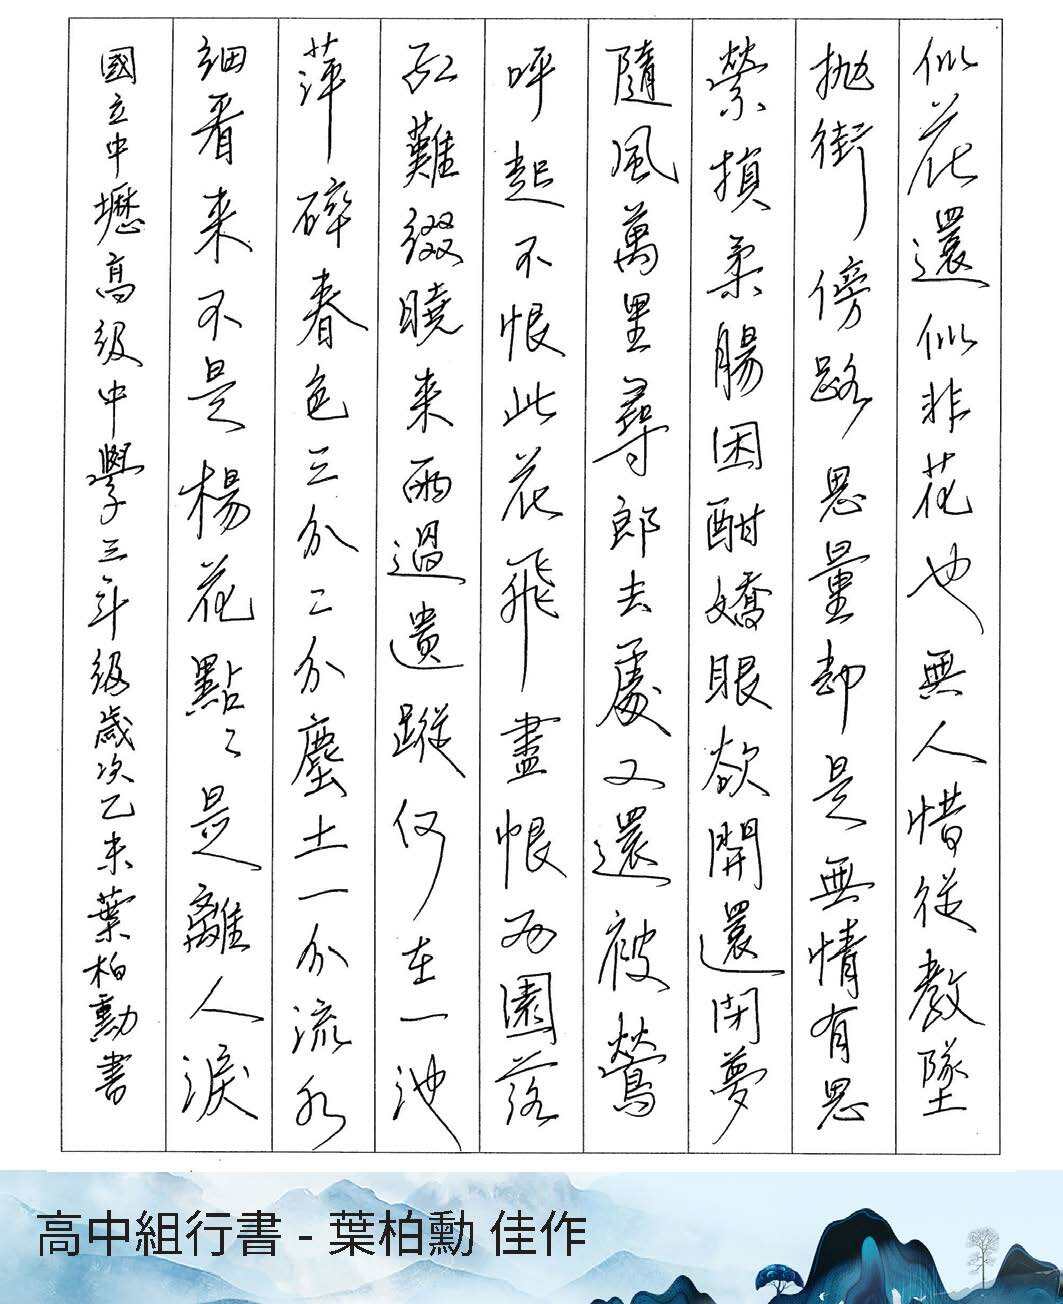 似花還似非花也無人惜從教墜
抛街傍路思量却是無情有思
縈損柔腸困酣嬌眼欲開還閉夢
隨風萬里尋郎去處又還被鶯
呼起不恨此花飛盡恨西園落
紅難綴曉来雨過遺蹤何在一池
萍碎春色三分二分塵土一分流水
細看来不是楊花點〻是離人淚
國立中壢高級中學三年級歲次乙未葉柏勳書
高中組行書 - 葉柏勳 佳作